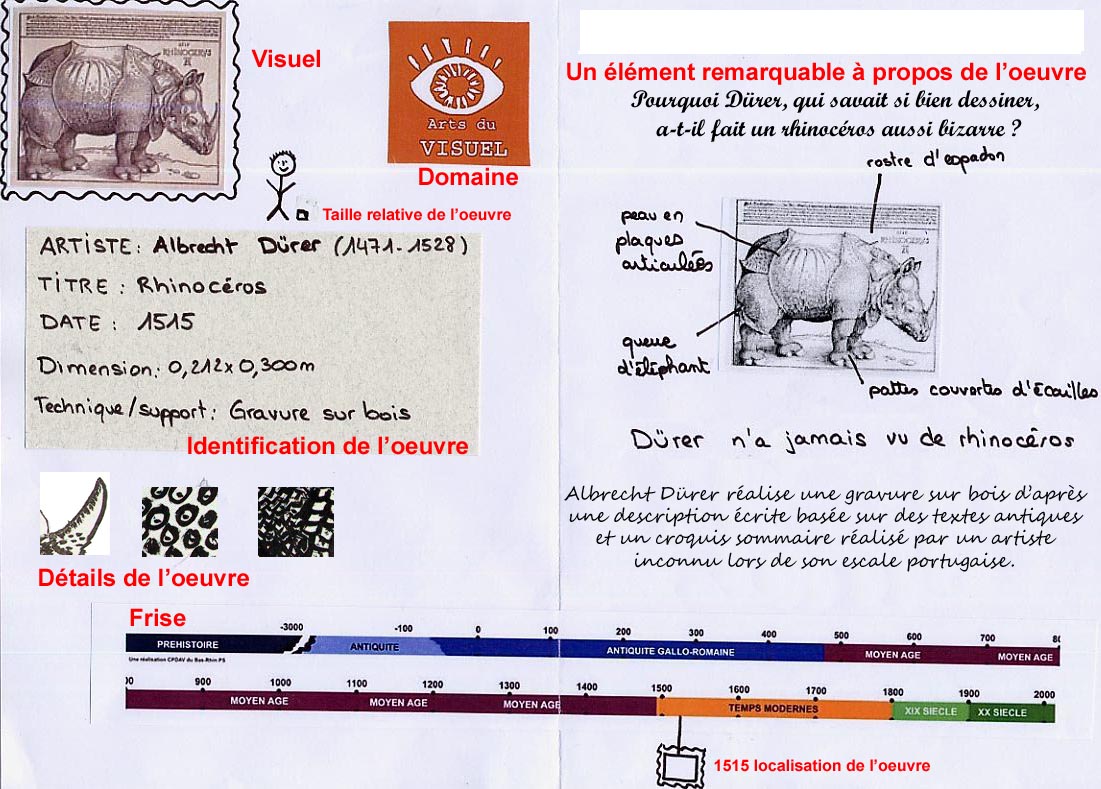 RHINOCERVS
Visuel
Arts du
VISUEL
Domaine
Taille relative de l'oeuvre
ARTISTE: Albrecht Dürer (1471-1528)
TITRE : Rhinocéros
DATE : 1515
Dimension: 0,212x0,300m
Technique/support: Gravure sur bois
Identification de l'oeuvre
Détails de l'oeuvre
Un élément remarquable à propos de l'oeuvre
Pourquoi Dürer, qui savait si bien dessiner,
a-t-il fait un rhinocéros aussi bizarre ?
rostre d'espadon
peau en
plaques
articulées
RHINOCERVS
queue
d'éléphant
pattes couvertes d'écailles
Dürer n'a jamais vu de rhinocéros
Albrecht Dürer réalise une gravure sur bois d'après
une description écrite basée sur des textes antiques
et un croquis sommaire réalisé par un artiste
inconnu lors de son escale portugaise.
Frise
-3000 -100 0 100 200 300 400 500 600 700 80
PREHISTOIRE ANTIQUITE ANTIQUITE GALLO-ROMAINE MOYEN AGE MOYEN AGE
Une réalisation CPDAV du Bas-Rhin PS
00 900 1000 1100 1200 1300 1400 1500 1600 1700 1800 1900 2000
MOYEN AGE MOYEN AGE MOYEN AGE TEMPS MODERNES XIX SIECLE XX SIECLE
1515 localisation de l'oeuvre